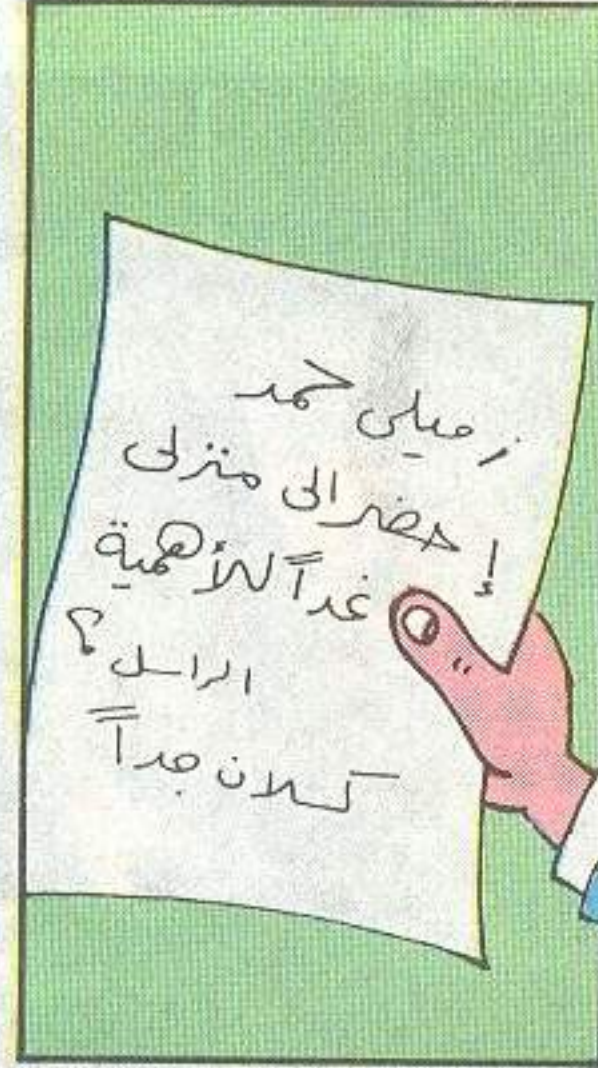 زميلي حمد
إحضر الى منزلى
غداً للأهمية
الراسل؟
كسلان جداً